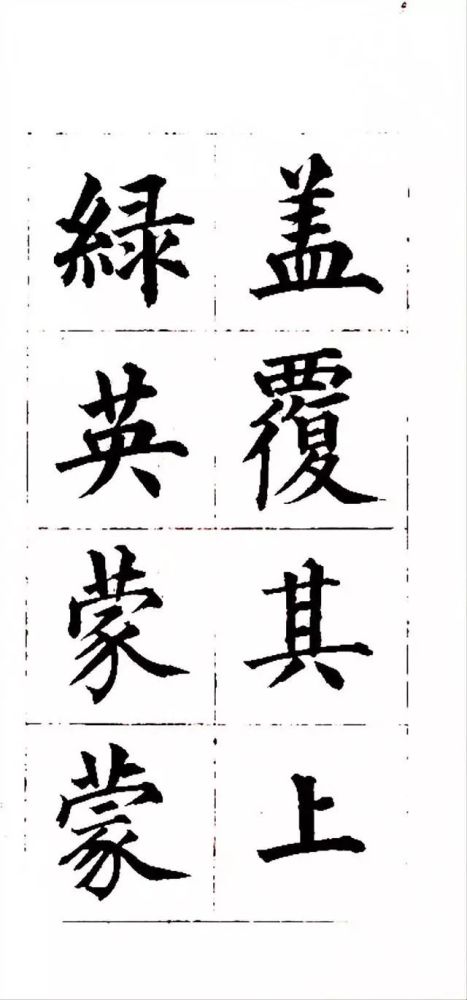 盖覆其上
緑英蒙蒙